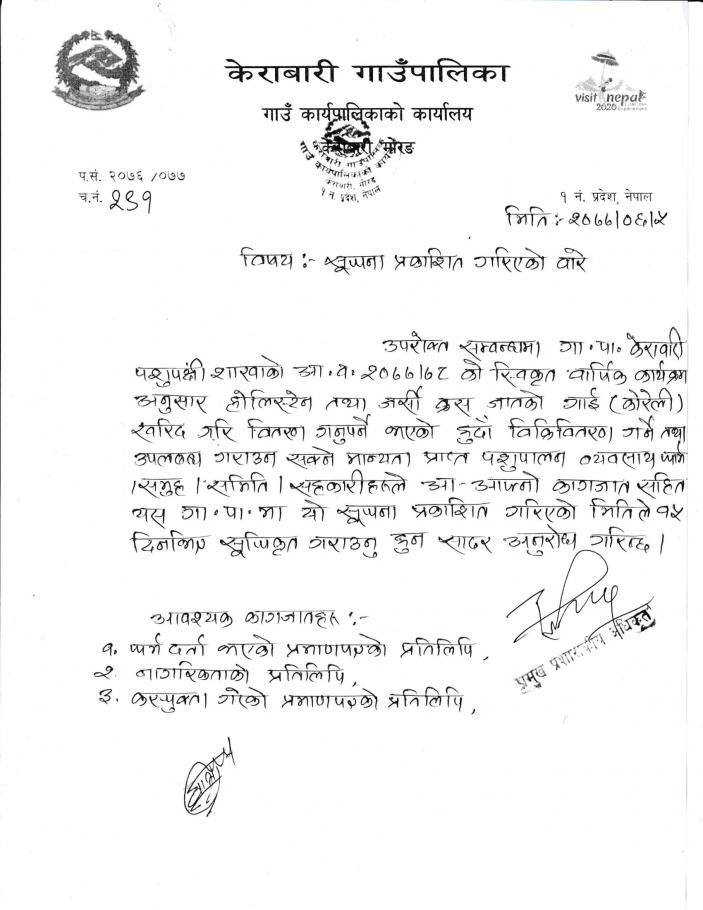 केराबारी गाउँपालिका
visit nepal
2020
गाउँ कार्यपालिकाको कार्यालय
केराबारी, मोरङ
केराबारी गाउँपालिका
गाउँ कार्यपालिकाको कार्यालय
केराबारी, मोरङ
१ नं. प्रदेश, नेपाल
प.सं. २०७६/०७७
च.नं. २३१
१ नं. प्रदेश, नेपाल
मिति :- २०७७/०६/५
विषय :- सूचना प्रकाशित गरिएको वारे
उपरोक्त सम्वन्धमा गा.पा. केरावारी
पशुपंक्षी शाखाको आ.व. २०७७/७८ को स्विकृत वार्षिक कार्यक्रम
अनुसार होलिस्टेन तथा जर्सी क्रस जातको गाई (कोरेली)
खरिद गरि वितरण गनुपर्ने भएको हुदाँ विक्रिवितरण गर्ने तथा
उपलब्ध गराउन सक्ने मान्यता प्राप्त पशुपालन व्यवसाय फार्म
/समुह /समिति /सहकारीहरुले आ-आफ्नो कागजात सहित
यस गा.पा.मा यो सूचना प्रकाशित गरिएको मितिले १५
दिनभित्र सूचिकृत गराउनु हुन सादर अनुरोध गरिन्छ ।
प्रमुख प्रशासकीय अधिकृत
आवश्यक कागजातहरु :-
१. फार्म दर्ता भएको प्रमाणपत्रको प्रतिलिपि,
२. नागरिकताको प्रतिलिपि,
३. करचुक्ता गरेको प्रमाणपत्रको प्रतिलिपि,